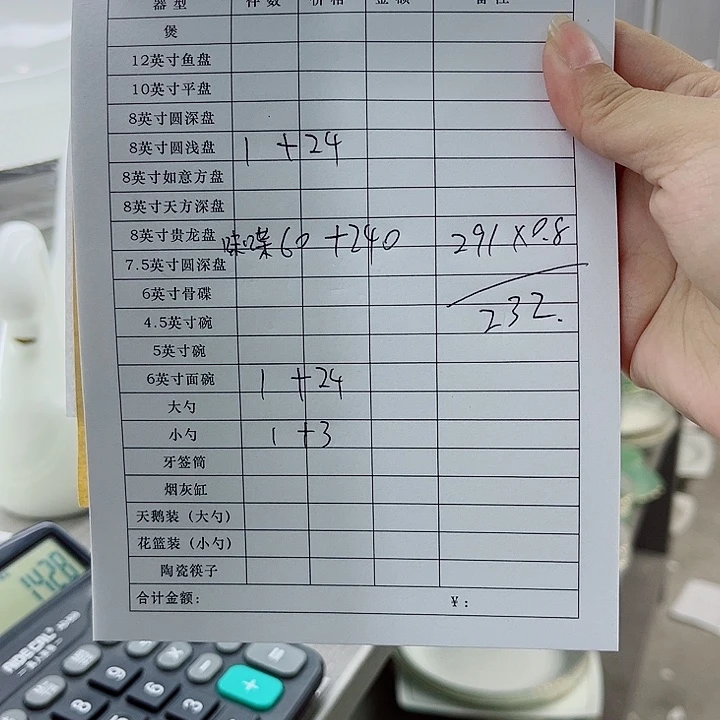 器型 件数 价格 金额 备注
煲
12英寸鱼盘
10英寸平盘
8英寸圆深盘
8英寸圆浅盘 1 +24
8英寸如意方盘
8英寸天方深盘
8英寸贵龙盘 味碟60 +240 291×0.8
7.5英寸圆深盘
6英寸骨碟
4.5英寸碗 232.
5英寸碗
6英寸面碗 1 +24
大勺
小勺 1 +3
牙签筒
烟灰缸
天鹅装（大勺）
花篮装（小勺）
陶瓷筷子
合计金额： ¥：
1428
9
8
6
×
-
=
+
3